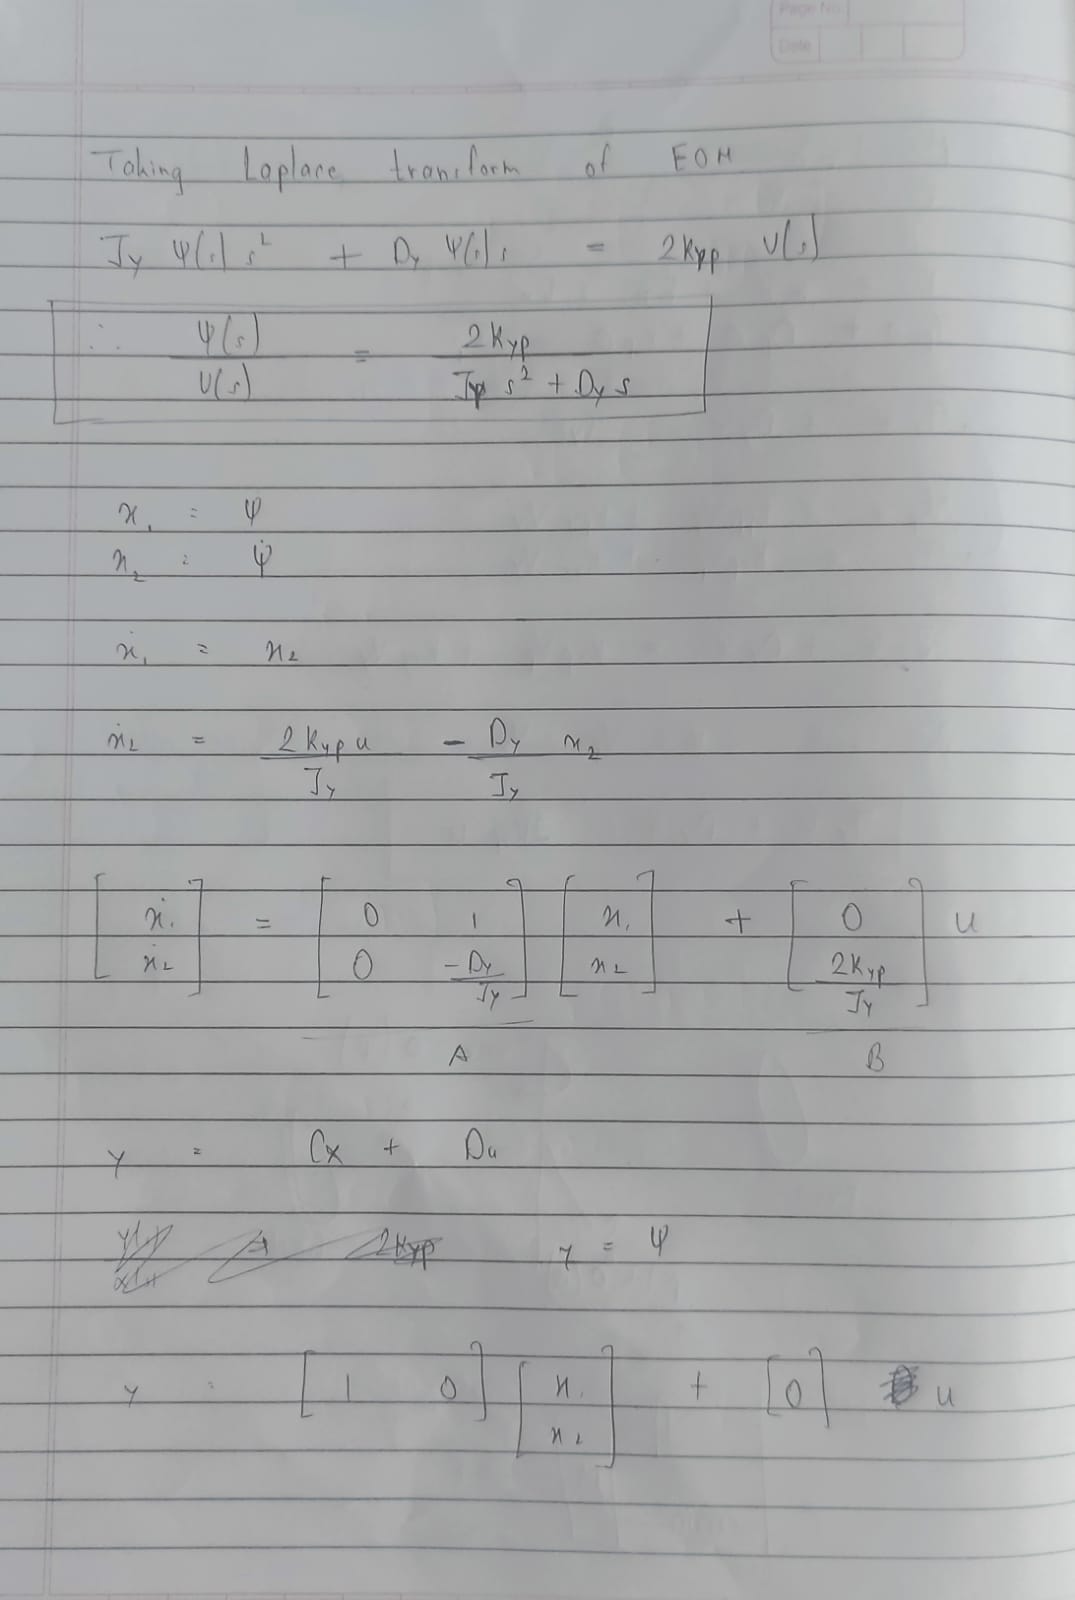 Page No.
Date
Taking Laplace transform of EOM
Jy Ψ(s) s² + Dy Ψ(s) s = 2Kyp U(s)
∴ Ψ(s)/U(s) = 2Kyp/(Jy s² + Dy s)
x₁ = ψ
x₂ = ψ̇
ẋ₁ = x₂
ẋ₂ = 2Kyp u/Jy - Dy/Jy x₂
[ẋ₁; ẋ₂] = [0 1; 0 -Dy/Jy] [x₁; x₂] + [0; 2Kyp/Jy] u
A B
y = Cx + Du
2Kyp y = ψ
y = [1 0] [x₁; x₂] + [0] u